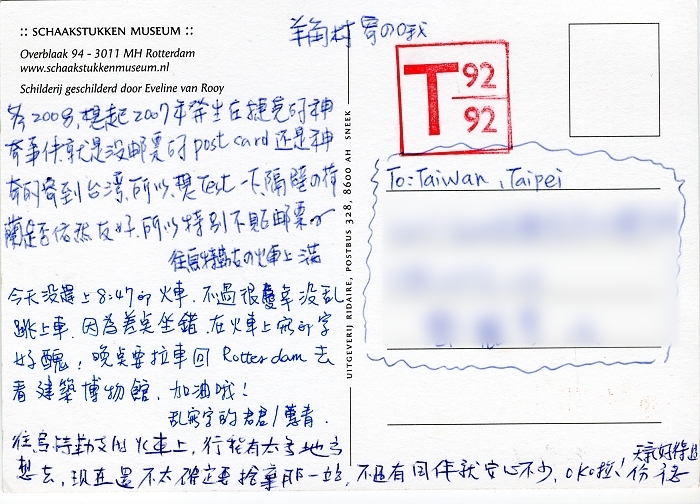 :: SCHAAKSTUKKEN MUSEUM ::
Overblaak 94 - 3011 MH Rotterdam
www.schaakstukkenmuseum.nl
Schilderij geschilderd door Eveline van Rooy
羊角村寄のの哦
T 92
92
2008,想起2007年發生在捷克的神
奇事件就是沒邮票的 post card 还是神
奇的寄到台湾,所以,想 test 一下隔壁の荷
蘭是否依然友好,所以特別不貼邮票
往烏特勒支の火車上 滿
今天沒趕上8:47的火車,不過很慶幸沒乱
跳上車,因為差点坐錯,在火車上寫的字
好醜,晚点要拉車回 Rotterdam 去
看建築博物館,加油哦!
乱寫字的君君/蕙青.
往烏特勒支的火車上,行程有太多地方
想去,現在還不太確定要捨棄那一站,不過有同伴就安心不少,OK啦!
天氣好得
UITGEVERIJ RIDAIRE, POSTBUS 328, 8600 AH SNEEK
To: Taiwan, Taipei